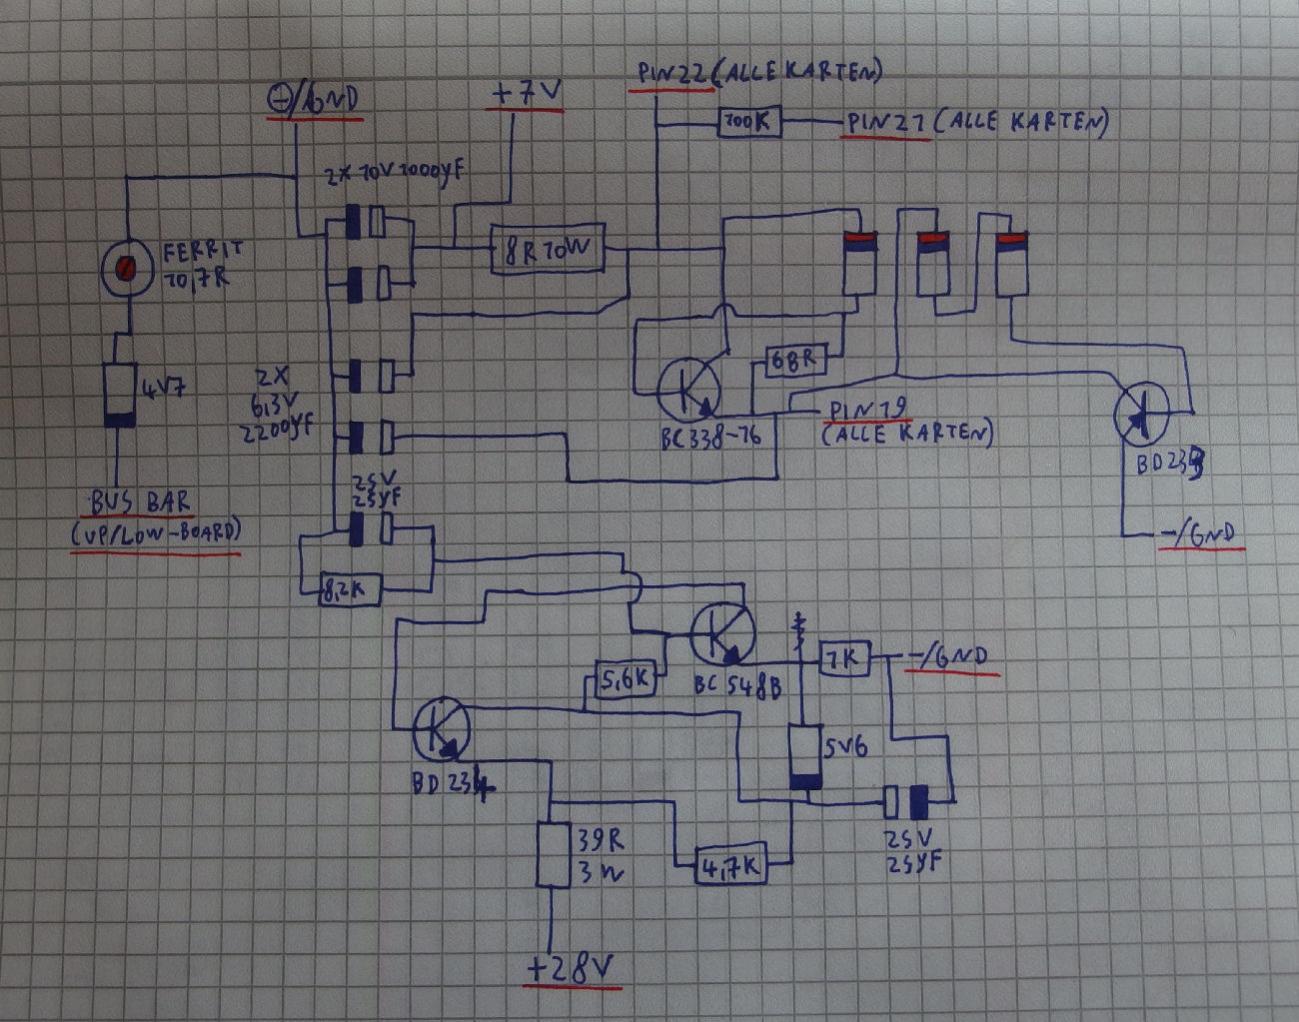 ⊕/GND
+7V
PIN22 (ALLE KARTEN)
100K
PIN21 (ALLE KARTEN)
2X 10V 1000yF
FERRIT
10,7R
8R 10W
4V7
2X
6,3V
2200yF
68R
BC338-16
PIN19
(ALLE KARTEN)
BD239
BUS BAR
(UP/LOW-BOARD)
25V
25yF
-/GND
8,2K
5,6K
BC548B
1K
-/GND
BD234
5V6
39R
3W
4,7K
25V
25yF
+28V